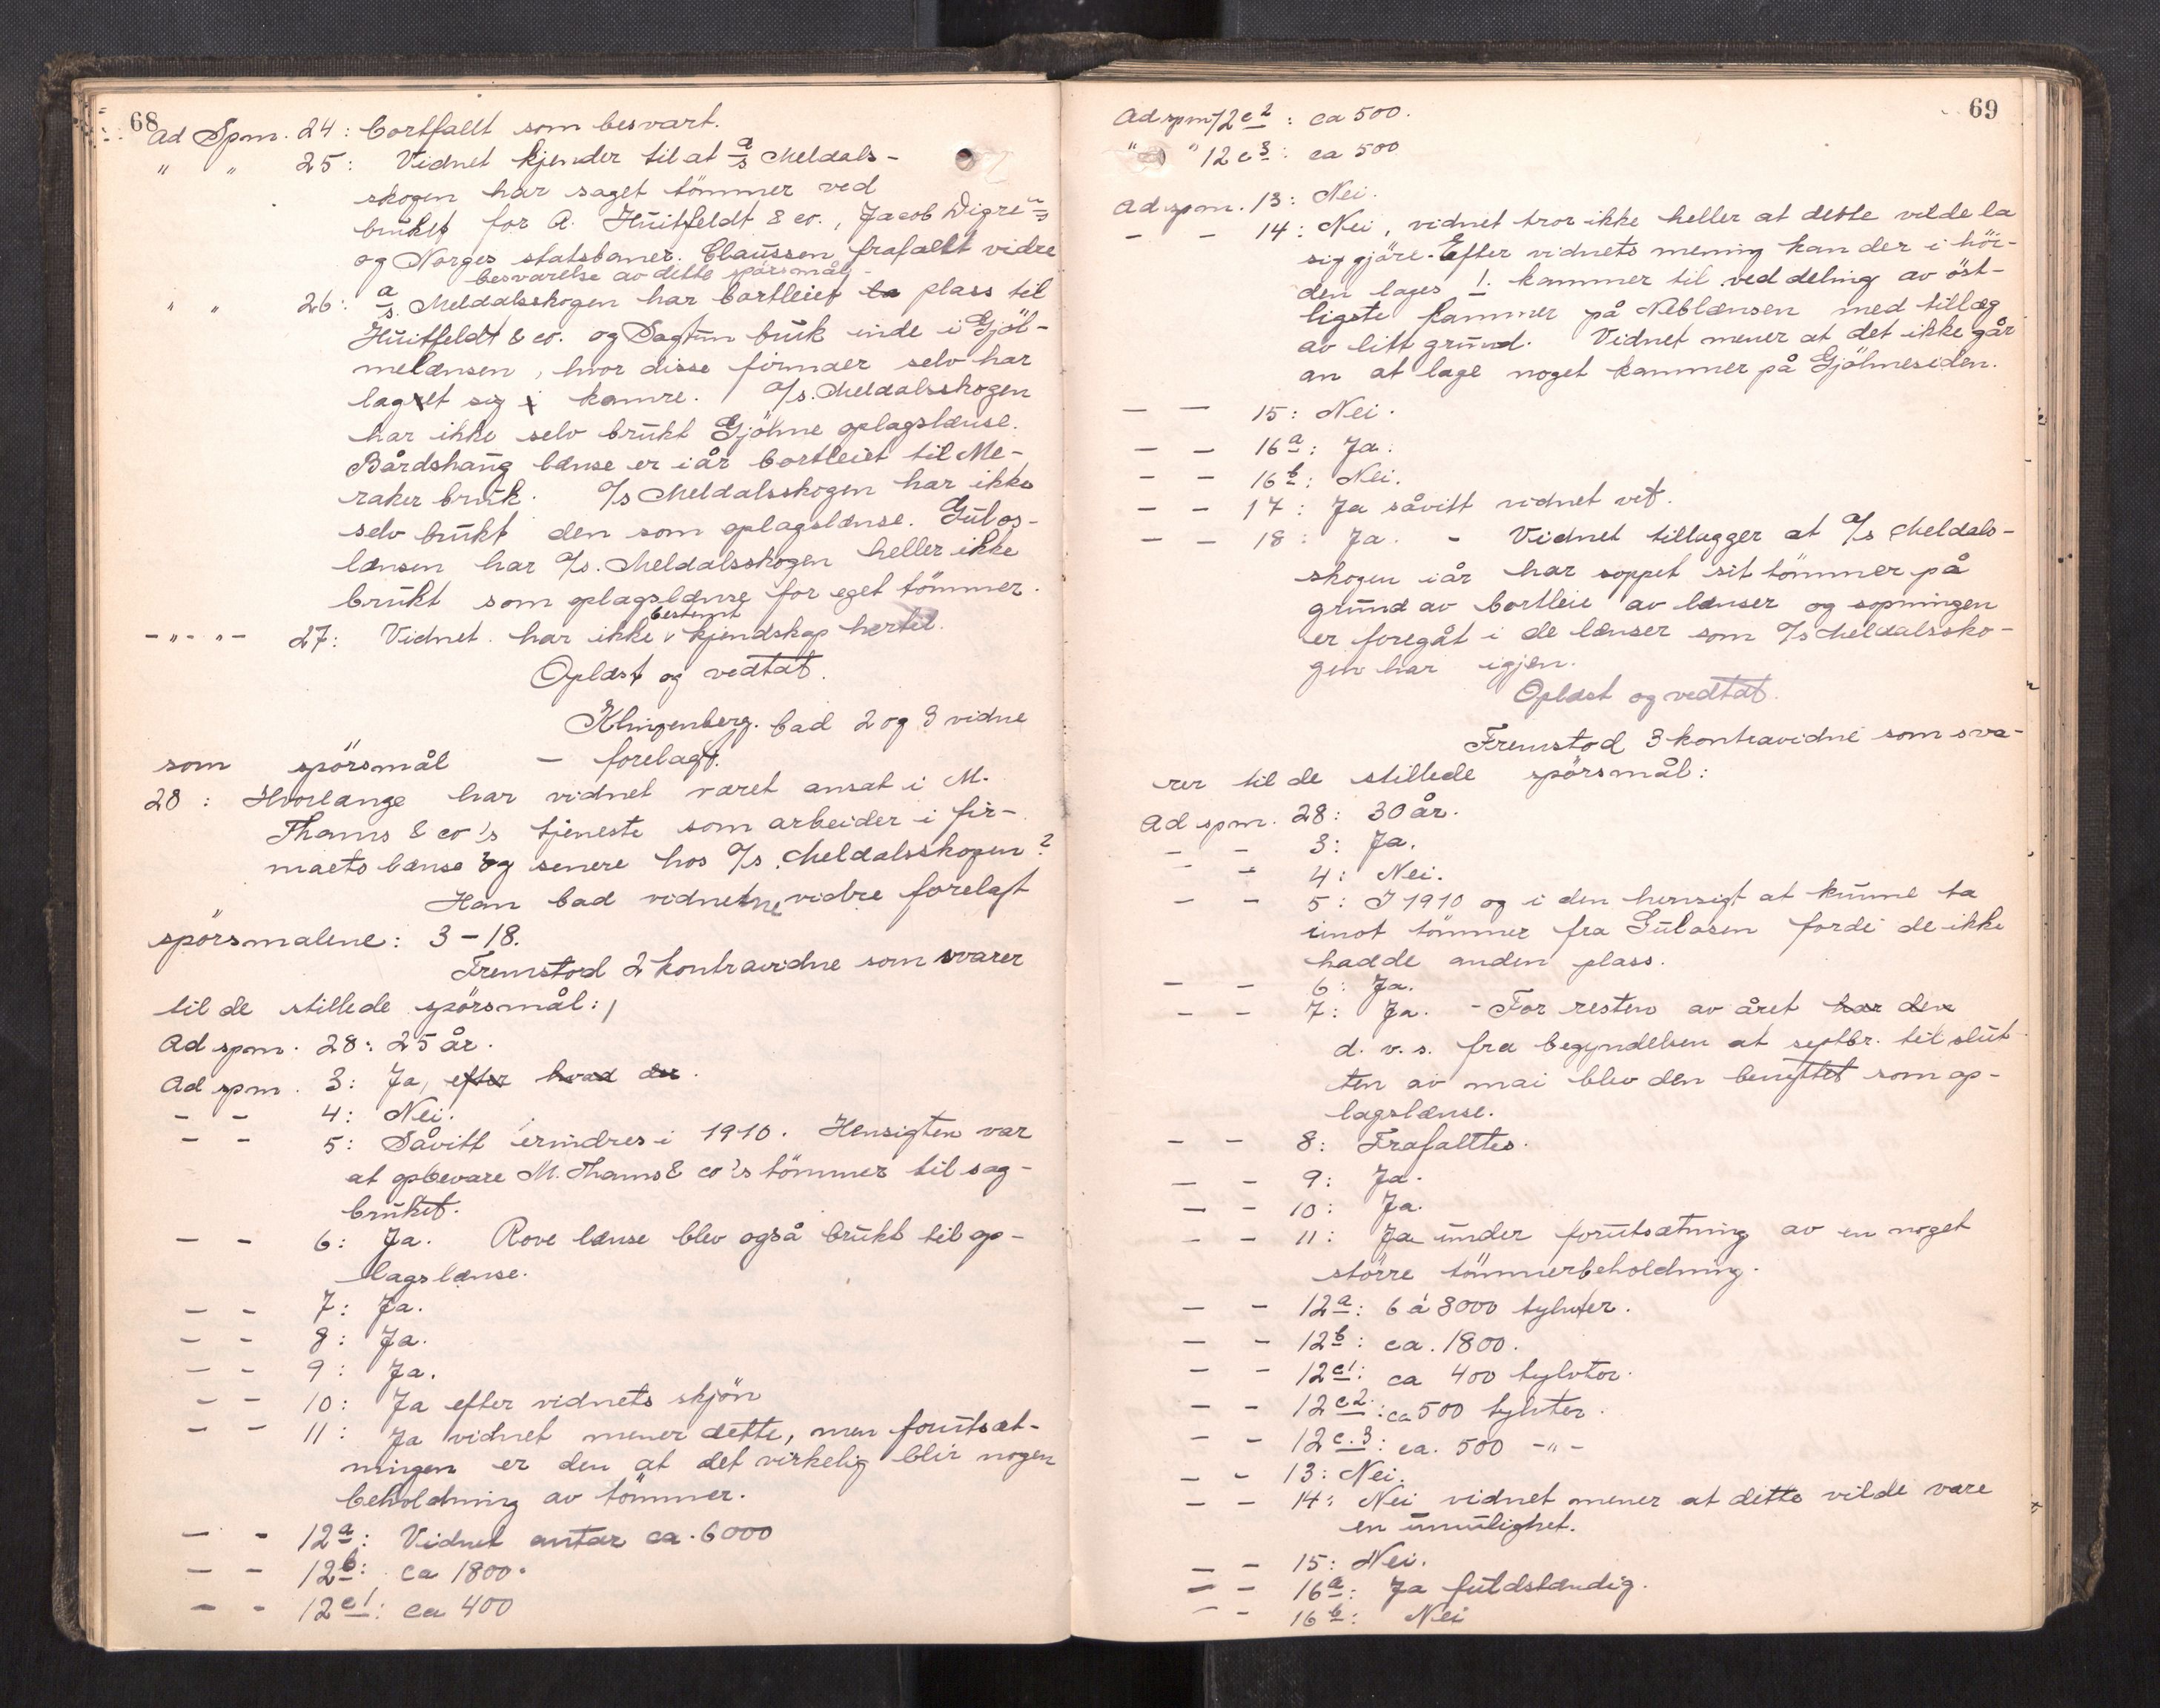 68
Ad Spm. 24: bortfallt som besvart.
" " 25: Vidnet kjender til at a/s Meldals-
skogen har saget tömmer ved
bruket for A. Huitfeldt & co., Jacob Digre
og Norges statsbaner. Claussen frafallt vidre
besvarelse av dette spörsmål.
" " 26: a/s. Meldalsskogen har bortleiet plass til
Huitfeldt & co. og Sagtun bruk inde i Gjöl-
melænsen, hvor disse firmaer selv har
laget sig kamre. A/s. Meldalsskogen
har ikke selv brukt Gjölme oplagslænse.
Bårdshaug lænse er iår bortleiet til Me-
raker bruk. A/s Meldalsskogen har ikke
selv brukt den som oplagslænse. Gulos-
lænsen har A/s. Meldalsskogen heller ikke
brukt som oplagslænse for eget tömmer.
-"- "- 27: Vidnet har ikke bestemt kjendskap hertil.
Oplæst og vedtat.
Klingenberg bad 2 og 3 vidne
som spörsmål – forelagt.
28: Hvorlænge har vidnet været ansat i M.
Thams & co's tjeneste som arbeider i fir-
maets lænse og senere hos A/s. Meldalsskogen?
Han bad vidnetne vidre forelagt
spörsmalene: 3-18.
Fremstod 2 kontravidne som svarer
til de stillede spörsmål:
Ad spm. 28: 25 år.
Ad spm. 3: Ja, efter hvad der.
- - 4: Nei.
- - 5: Såvitt erindres i 1910. Hensigten var
at opbevare M. Thams & co's tömmer til sag-
bruket.
- - 6: Ja. Rove lænse blev også brukt til op-
lagslænse.
- - 7: Ja.
- - 8: Ja.
- - 9: Ja.
- - 10: Ja efter vidnets skjön
- - 11: Ja vidnet mener dette, men forutsæt-
ningen er den at det virkelig blir nogen
beholdning av tömmer.
- - 12a: Vidnet antar ca. 6000
- - 12b: ca 1800.
- - 12c1: ca 400
69
Ad spm 12c2: ca 500.
" " 12c3: ca 500
Ad spm. 13: Nei.
- - 14: Nei, vidnet tror ikke heller at dette vilde la
sig gjöre. Efter vidnets mening kan der i höi-
den lages 1. kammer til ved deling av öst-
ligste kammer på Neblænsen med tillæg
av litt grund. Vidnet mener at det ikke går
an at lage noget kammer på Gjölmesiden.
- - 15: Nei.
- - 16a: Ja.
- - 16b: Nei.
- - 17: Ja såvitt vidnet vet.
- - 18: Ja. - Vidnet tillægger at A/s Meldals-
skogen iår har soppet sit tömmer på
grund av bortleie av lænser og sopningen
er foregåt i de lænser som A/s Meldalssko-
gen har igjen.
Oplæst og vedtat.
Fremstod 3 kontravidne som sva-
rer til de stillede spörsmål:
Ad spm. 28: 30 år.
- - 3: Ja.
- 4: Nei.
- - 5: I 1910 og i den hensigt at kunne ta
imot tömmer fra Gulosen fordi de ikke
hadde anden plass.
- - 6: Ja.
- - 7: Ja. - For resten av året har den
d. v. s. fra begyndelsen at septbr. til slut
ten av mai blev den benyttet som op-
lagslænse.
- - 8: Frafalltes.
- - 9: Ja.
- - 10: Ja.
- - 11: Ja under forutsætning av en noget
större tömmerbeholdning.
- - 12a: 6 á 8000 tylvter.
- - 12b: ca. 1800.
- - 12c1: ca 400 tylvter.
- - 12c2: ca 500 tylvter.
- - 12c.3: ca. 500 -"-
- - 13: Nei.
- - 14: Nei vidnet mener at dette vilde være
en umulighet.
- - 15: Nei.
- - 16a: Ja fuldstændig.
- - 16b: Nei